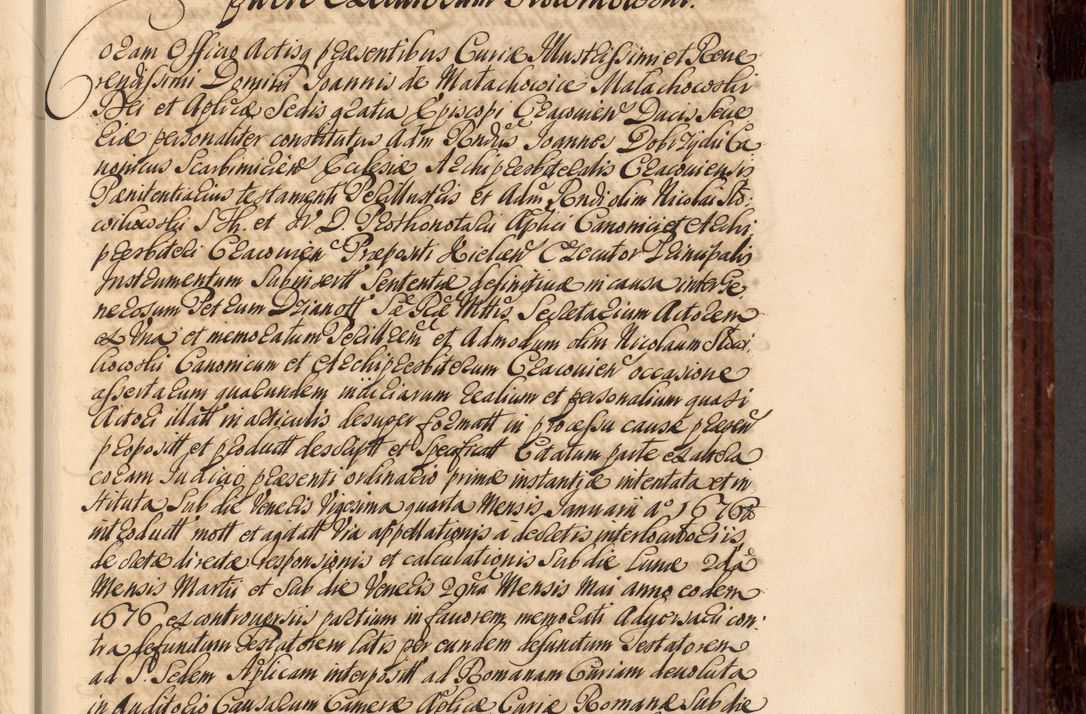 Coram Officio Actisq præsentibus Curiæ Illustrissimi et Reve
rendissimi Domini Joannis de Małachowice Małachowski
Dei et Aplicæ Sedis gratia Episcopi Cracovien Ducis Seve
riæ personaliter constitutus Adm Rndus Joannes Dobrzydii Ca
nonicus Scarbimiricn Ecclesiæ Archipresbiteralis Cracoviensis
Pænitentiarius testamenti Perillustris et Adm Rndi olim Nicolai
S Th. et D. Prothonotarii Aplici Canonici et Archi
presbiteri Cracovien Præpositi Kielcen Executor Principalis
Instrumentum Subinsertt Sententiæ definitivæ in causa inter Ge
nerosum Petrum Drianott Sæ Ræ Mttis Secretarium Actorem
ex Una et memoratum Perillrem et Admodum olim Nicolaum
Canonicum et Archipresbiterum Cracovien occasione
assertarum quarundem iniuriarum realium et personalium quasi
Actori illatt in articulis desuper formatt in processu causæ præsen
propositt et productt descriptt et specificatt Citatum parte ex altera
coram Judicio præsenti ordinario primæ instantiæ intentata et in
stituta Sub die Veneris Vigesima quarta Mensis Januarii a 1676
introductt mott et agitatt Via appellationis à decretis interlocutoriis
decretæ directæ responsionis et calculationis Sub die Lunæ 2da
Mensis Martii et Sub die Veneris 29na Mensis Mai anno eodem
1676 ex controversiis partium in favorem memorati Adversarii con
tra defunctum Testatorem latis per eundem defunctum Testatorem
ad S. Sedem Aplicam interpositt ad Romanam Curiam devoluta
in Auditorio Causarum Cameræ Aplicæ Curiæ Romanæ Sub die